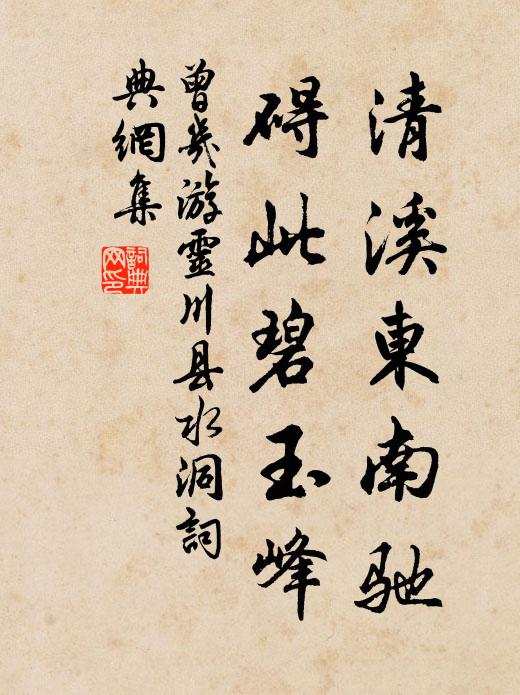 清溪東南驰
碍此碧玉峰
曾幾游靈川县水洞詞
典網集
詞典網印